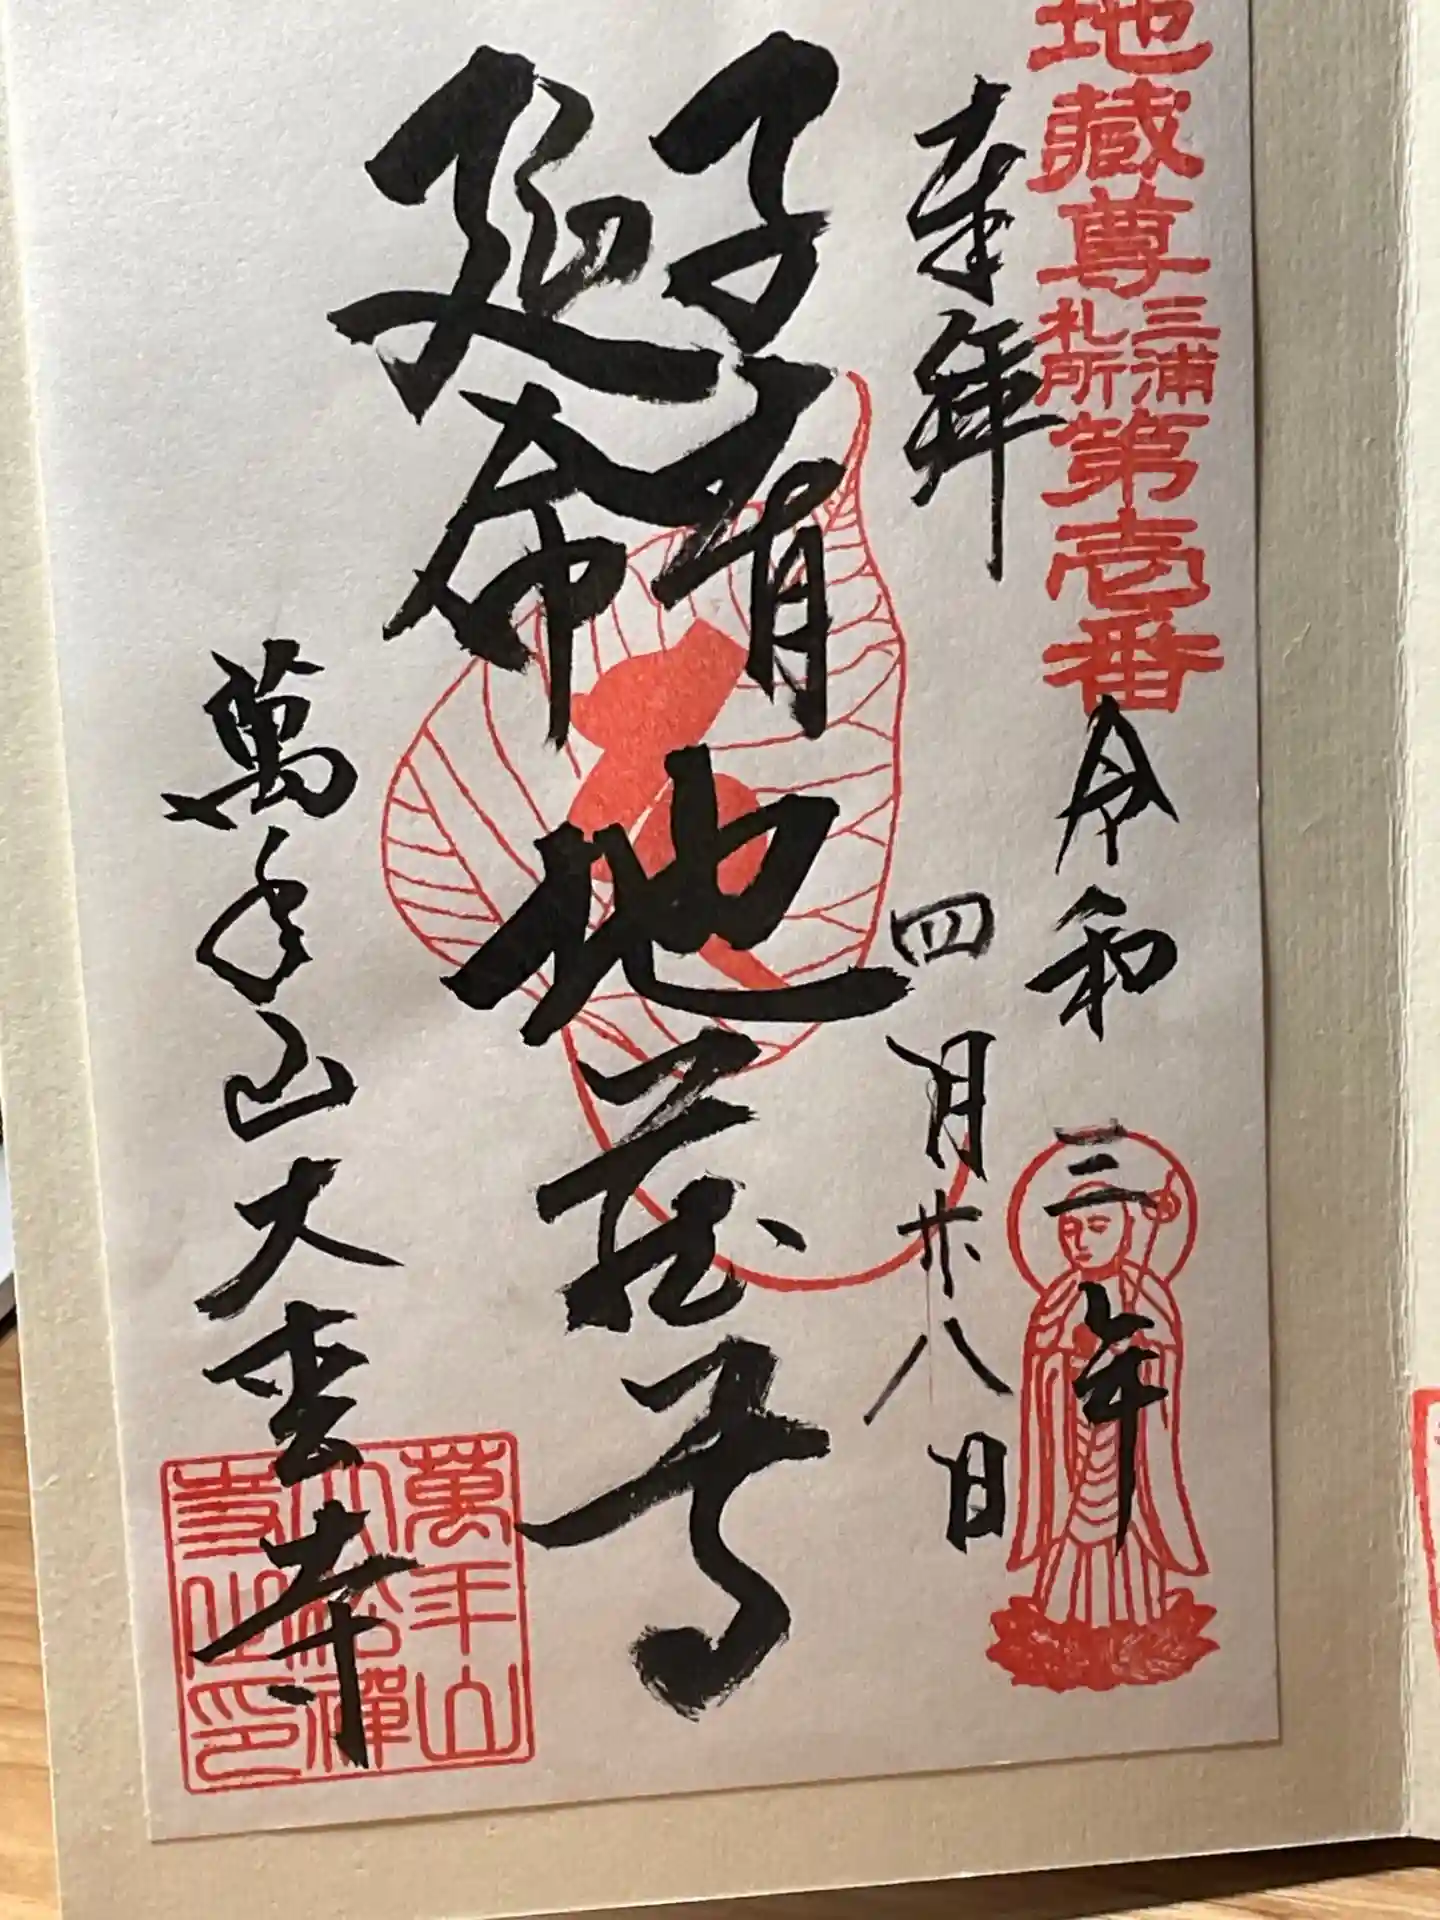 地蔵尊三浦札所第壱番
奉拝
令和三年
四月廿八日
子育
延命
地蔵尊
萬年山大枩寺
萬年山
大松禪
寺之印